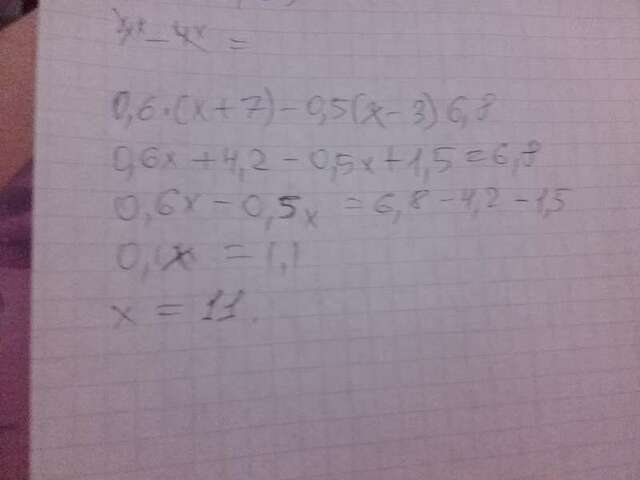 3x - 4x =
0,6·(x+7)-0,5(x-3)6,8
0,6x+4,2-0,5x+1,5=6,8
0,6x-0,5x=6,8-4,2-1,5
0,1x=1,1
x=11.